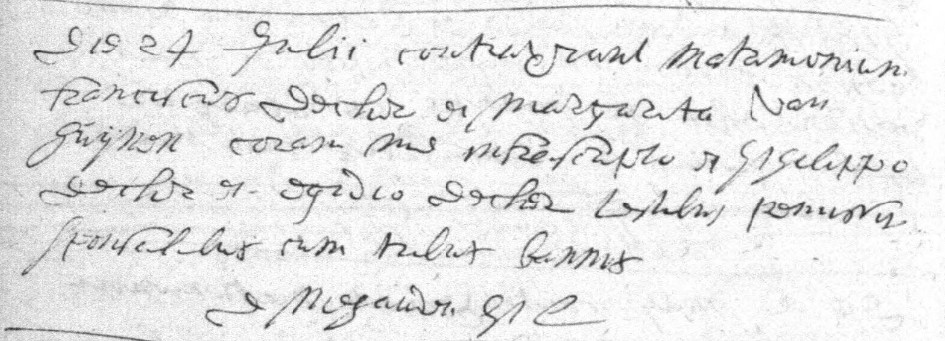 Die 24 Julii contraxerunt matrimonium
franciscus Decker et Margarita Van
coram me infrascripto et
Decker et egidio Decker testibus premissis
sponsalibus cum tribus bannis